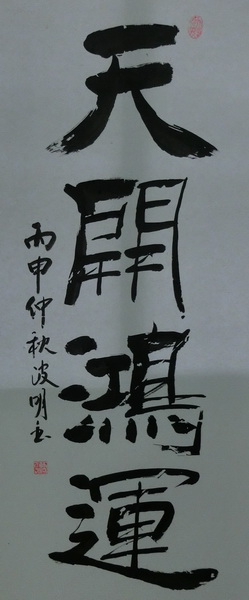 天開鴻運
丙申仲秋波明书